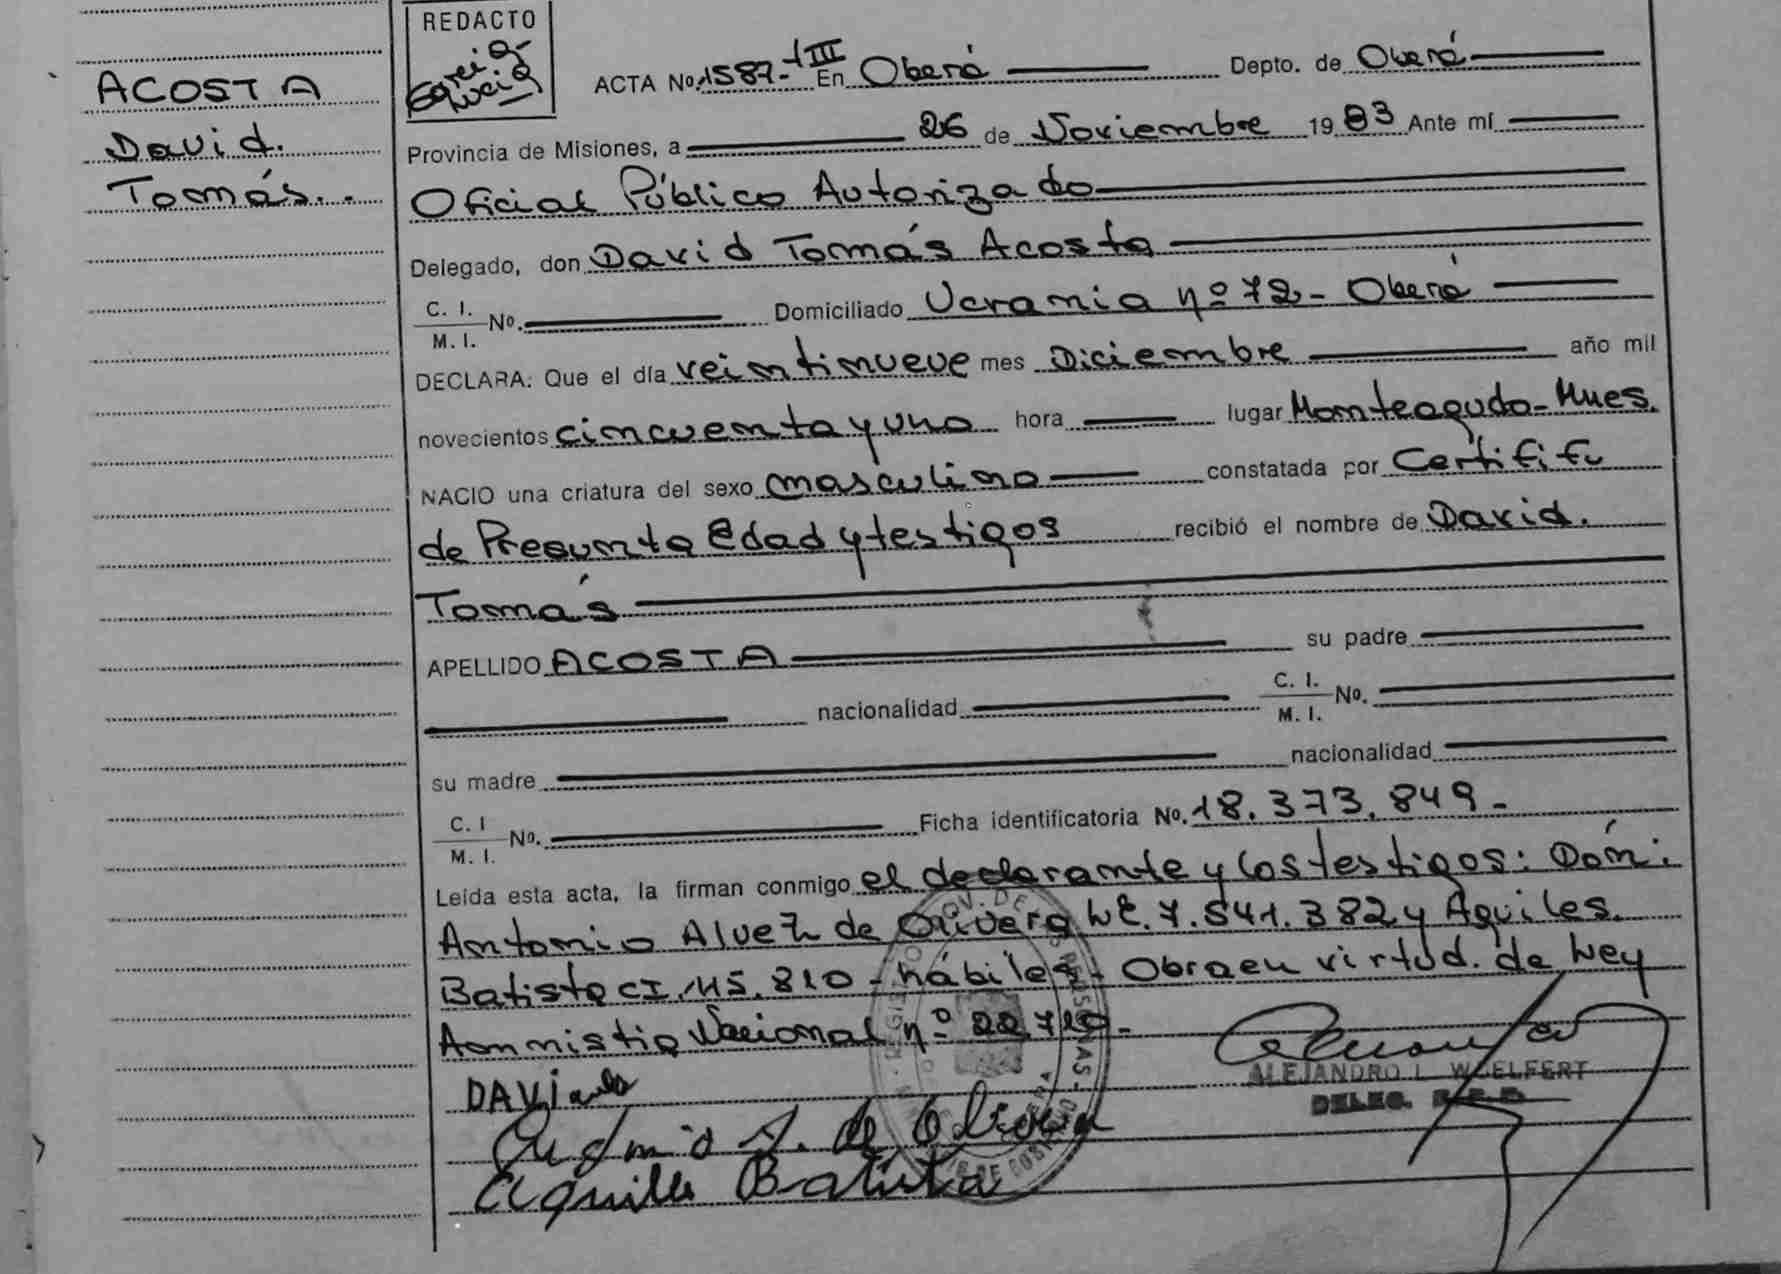 ACOSTA
David.
Tomás..
REDACTO
Lucia
ACTA No. 1587-tIII En Oberá Depto. de Oberá
Provincia de Misiones, a 26 de Noviembre 1983 Ante mí
Oficial Público Autorizado
Delegado, don David Tomás Acosta
C. I.
M. I. No. Domiciliado Ucrania nº 72- Oberá
DECLARA: Que el día veintinueve mes Diciembre año mil
novecientos cincuenta y uno hora lugar Monteagudo-Mnes.
NACIO una criatura del sexo masculino constatada por
de Presunta Edad y testigos recibió el nombre de David.
Tomás
APELLIDO ACOSTA su padre
nacionalidad C. I.
M. I. No.
su madre nacionalidad
C. I
M. I. No. Ficha identificatoria No. 18.373.849-
Leída esta acta, la firman conmigo el declarante y los testigos: Dón:
Antonio Alvez de Olivera LE. 7.541.382 y Aquiles
Batista CI. 145.810 - hábiles - Obra en virtud. de Ley
Amnistia Nacional nº
DAVi
A. de Olivera
Aquiles Batista
ALEJANDRO L. WOELFERT
DELEG.